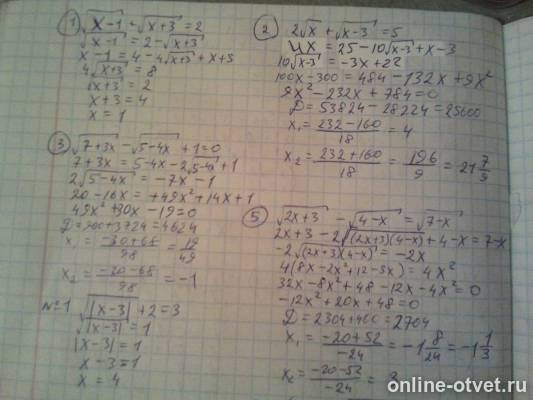 ① √(x-1) + √(x+3) = 2
√(x-1) = 2 - √(x+3)
x - 1 = 4 - 4√(x+3) + x + 3
4√(x+3) = 8
√(x+3) = 2
x + 3 = 4
x = 1
② 2√x + √(x-3) = 5
4x = 25 - 10√(x-3) + x - 3
10√(x-3) = -3x + 22
100x - 300 = 484 - 132x + 9x²
9x² - 232x + 784 = 0
D = 53824 - 28224 = 25600
x₁ = (232-160)/18 = 4
x₂ = (232+160)/18 = 196/9 = 21 7/9
③ √(7+3x) - √(5-4x) + 1 = 0
7 + 3x = 5 - 4x - 2√(5-4x) + 1
2√(5-4x) = -7x - 1
20 - 16x = +49x² + 14x + 1
49x² + 30x - 19 = 0
D = 900 + 3724 = 4624
x₁ = (-30+68)/98 = 19/49
x₂ = (-30-68)/98 = -1
№1 √|x-3| + 2 = 3
√|x-3| = 1
|x-3| = 1
x - 3 = 1
x = 4
⑤ √(2x+3) - √(4-x) = √(7-x)
2x + 3 - 2√((2x+3)(4-x)) + 4 - x = 7 - x
-2√((2x+3)(4-x)) = -2x
4(8x - 2x² + 12 - 3x) = 4x²
32x - 8x² + 48 - 12x - 4x² = 0
-12x² + 20x + 48 = 0
D = 2304 + 400 = 2704
x₁ = (-20+52)/-24 = -1 8/24 = -1 1/3
x₂ = (-20-52)/-24 = 3
online-otvet.ru